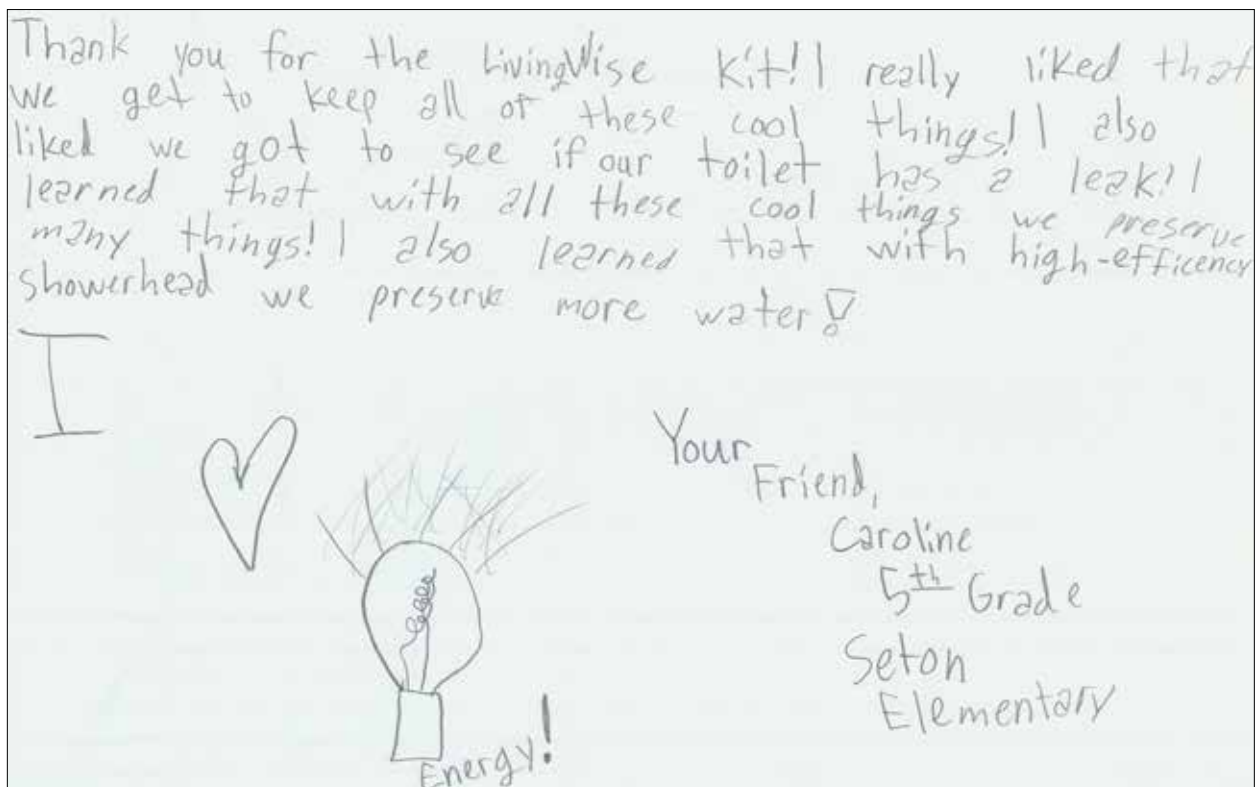 Thank you for the LivingWise Kit! I really liked that
we get to keep all of these cool things! I also
liked we got to see if our toilet has a leak! I
learned that with all these cool things we preserve
many things! I also learned that with high-efficency
showerhead we preserve more water!
I
Your
Friend,
Caroline
5th Grade
Seton
Elementary
Energy!